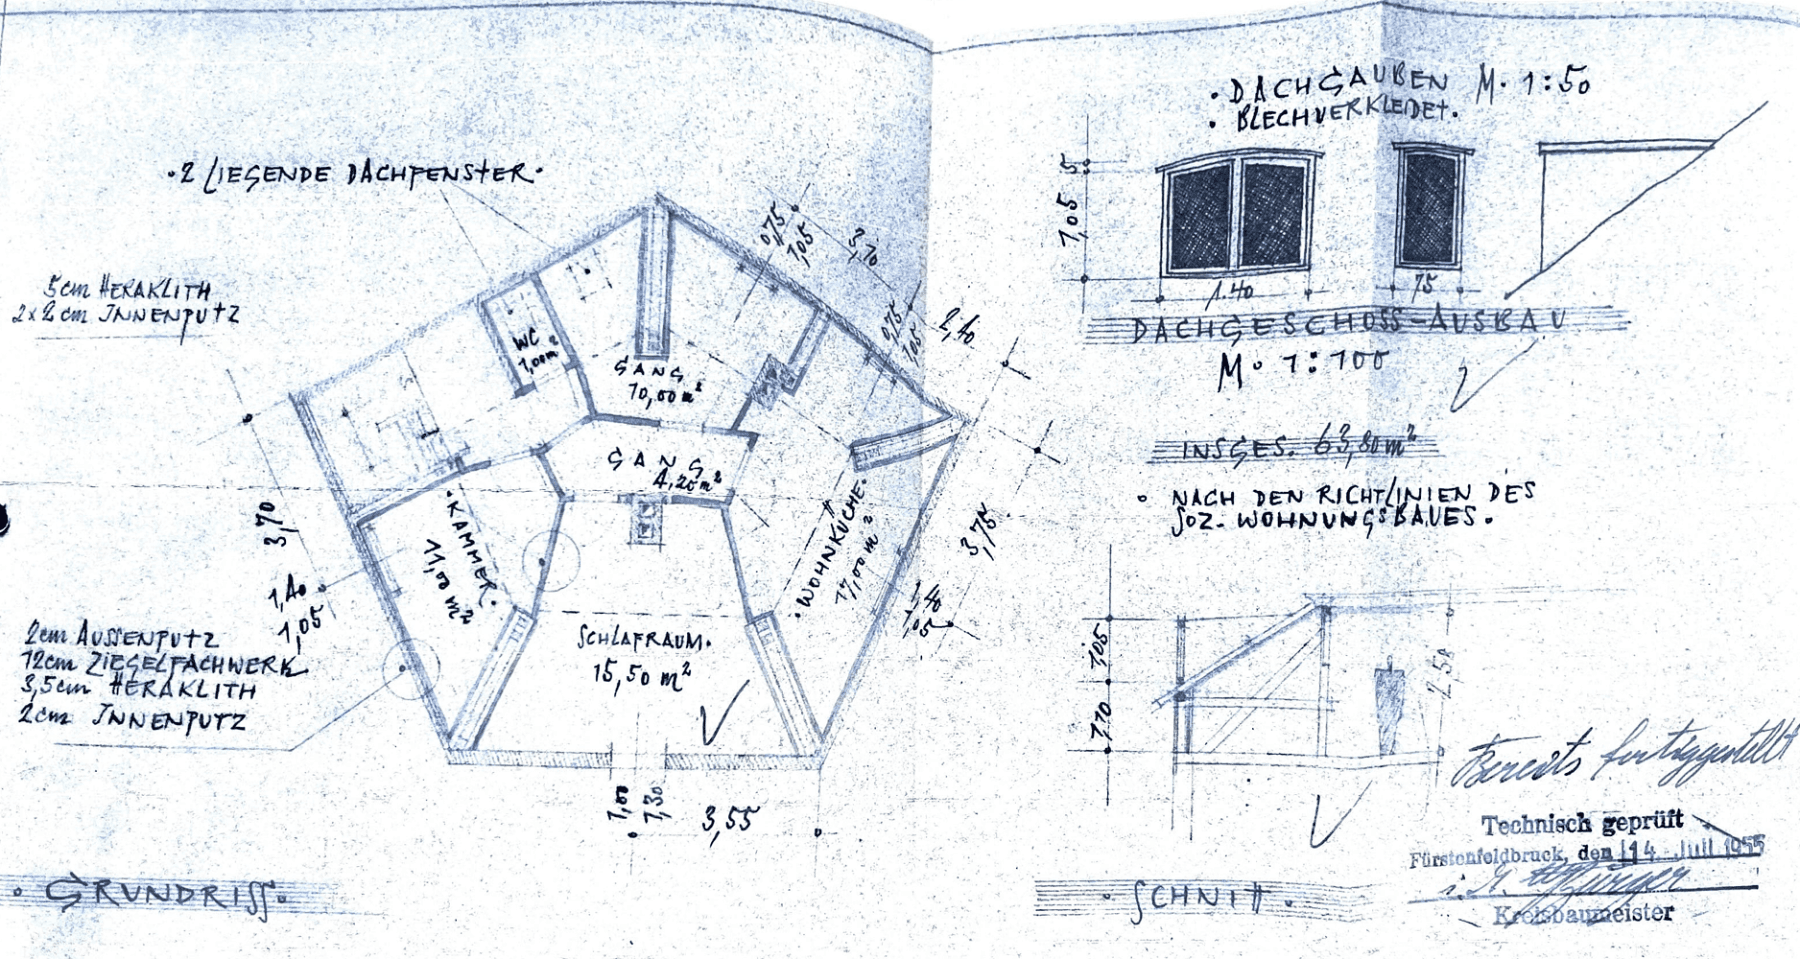 · 2 LIEGENDE DACHFENSTER ·
5cm HERAKLITH
2x2cm INNENPUTZ
WC
1,00m²
GANG
10,00m²
GANG
4,20m²
· KAMMER ·
11,00m²
· WOHNKÜCHE ·
17,00m²
SCHLAFRAUM.
15,50 m²
0,75
1,05
3,70
0,75
1,05
2,40
3,75
1,40
1,05
3,70
1,40
1,05
2cm AUSSENPUTZ
12cm ZIEGELFACHWERK
3,5cm HERAKLITH
2cm INNENPUTZ
1,00
1,30
3,55
· GRUNDRISS ·
· DACHGAUBEN M. 1:50
· BLECHVERKLEIDET.
5
1,05
1.40
75
DACHGESCHOSS-AUSBAU
M. 1:100
INSGES. 63,80m²
· NACH DEN RICHTLINIEN DES
SOZ. WOHNUNGSBAUES.
1,05
1,10
2,50
· SCHNITT ·
Bereits fertiggestellt
Technisch geprüft
Fürstenfeldbruck, den 14. Juli 1955
Kreisbaumeister